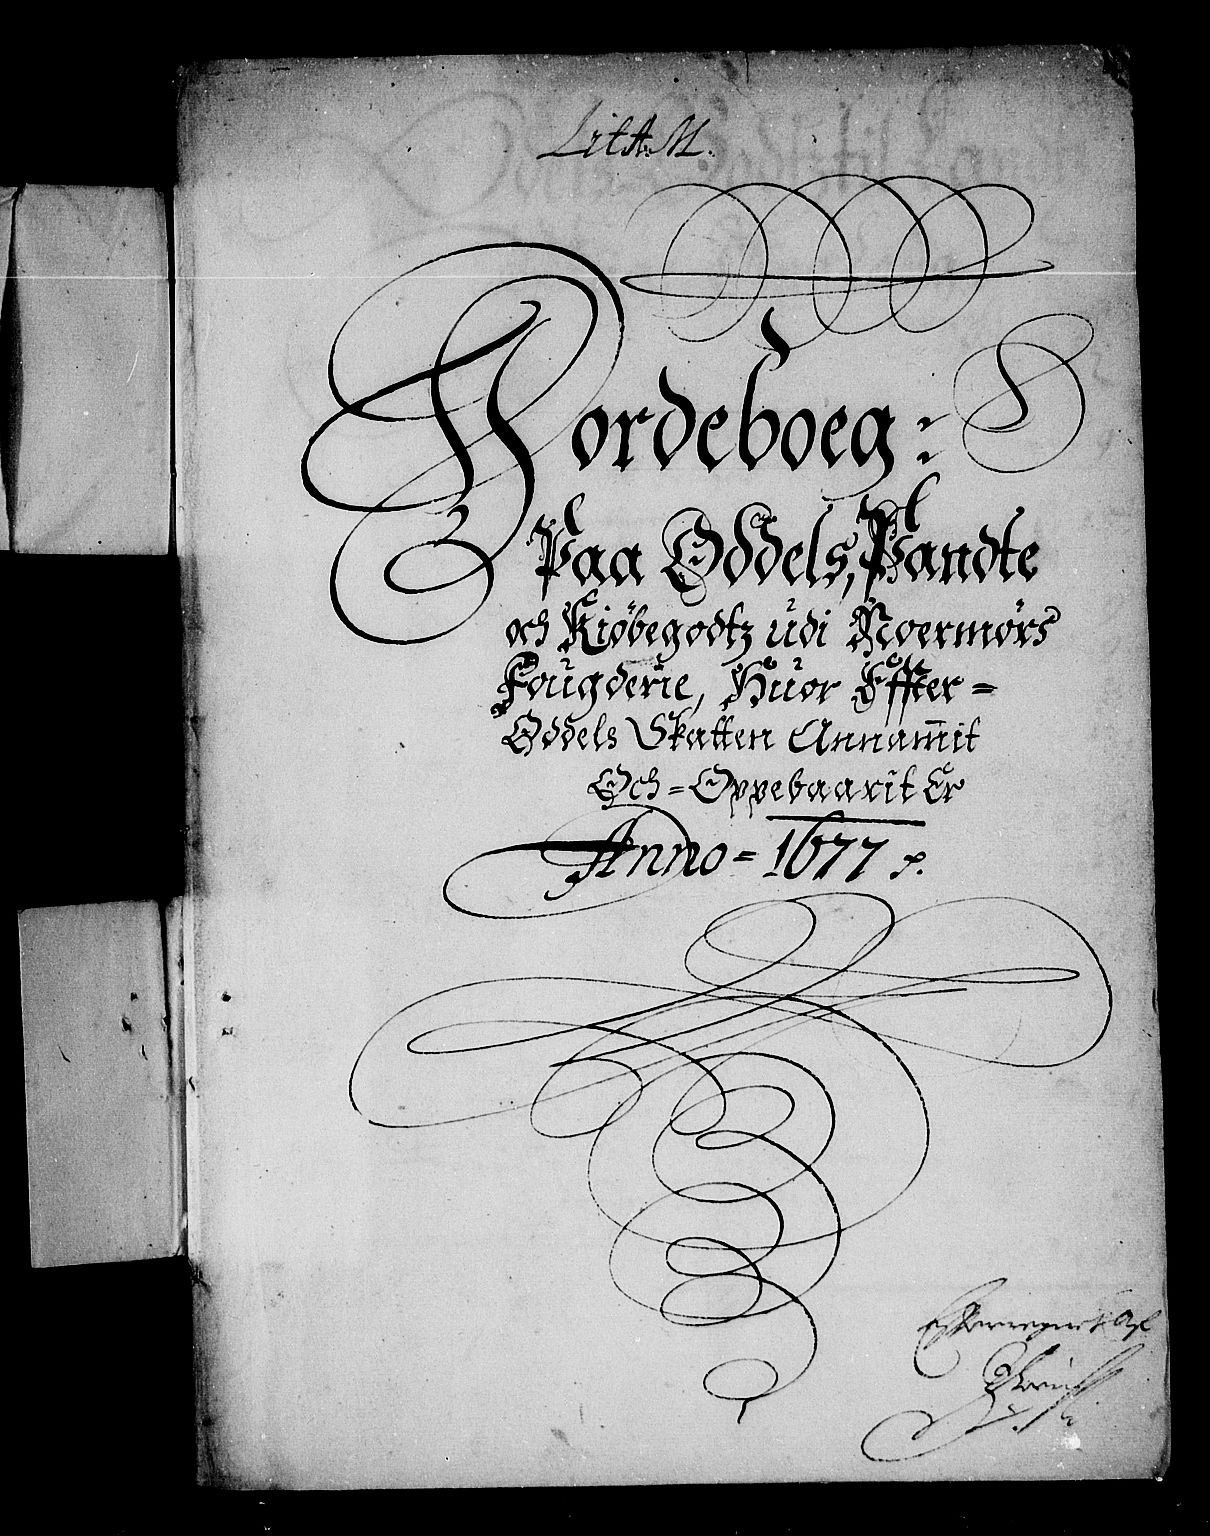 Lit A. M.
Jordeboeg:
Paa Oddels, Pandte
och Kiöbegodtz udi Noermörs
Fougderie, Huor Effter=
Oddels Skatten Annammit
Och=Oppebaarit Er
Anno=1677